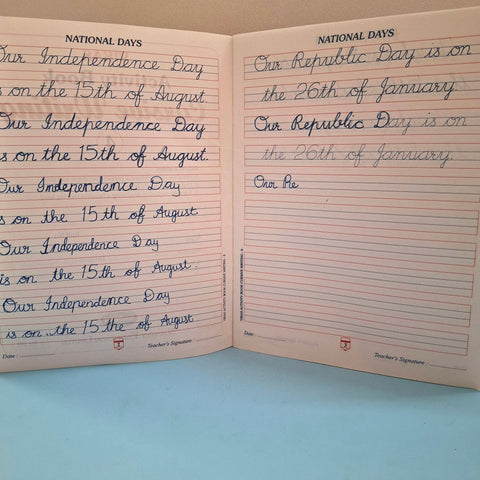 NATIONAL DAYS
Our Independence Day
is on the 15th of August.
Our Independence Day
is on the 15th of August.
Our Independence Day
is on the 15th of August
Our Independence Day
is on the 15th of August.
Our Independence Day
is on the 15 the of August
Date :
2
Teacher's Signature :
NATIONAL DAYS
Our Republic Day is on
the 26th of January.
Our Republic Day is on
the 26th of January.
Our Re
Date :
3
Teacher's Signature :